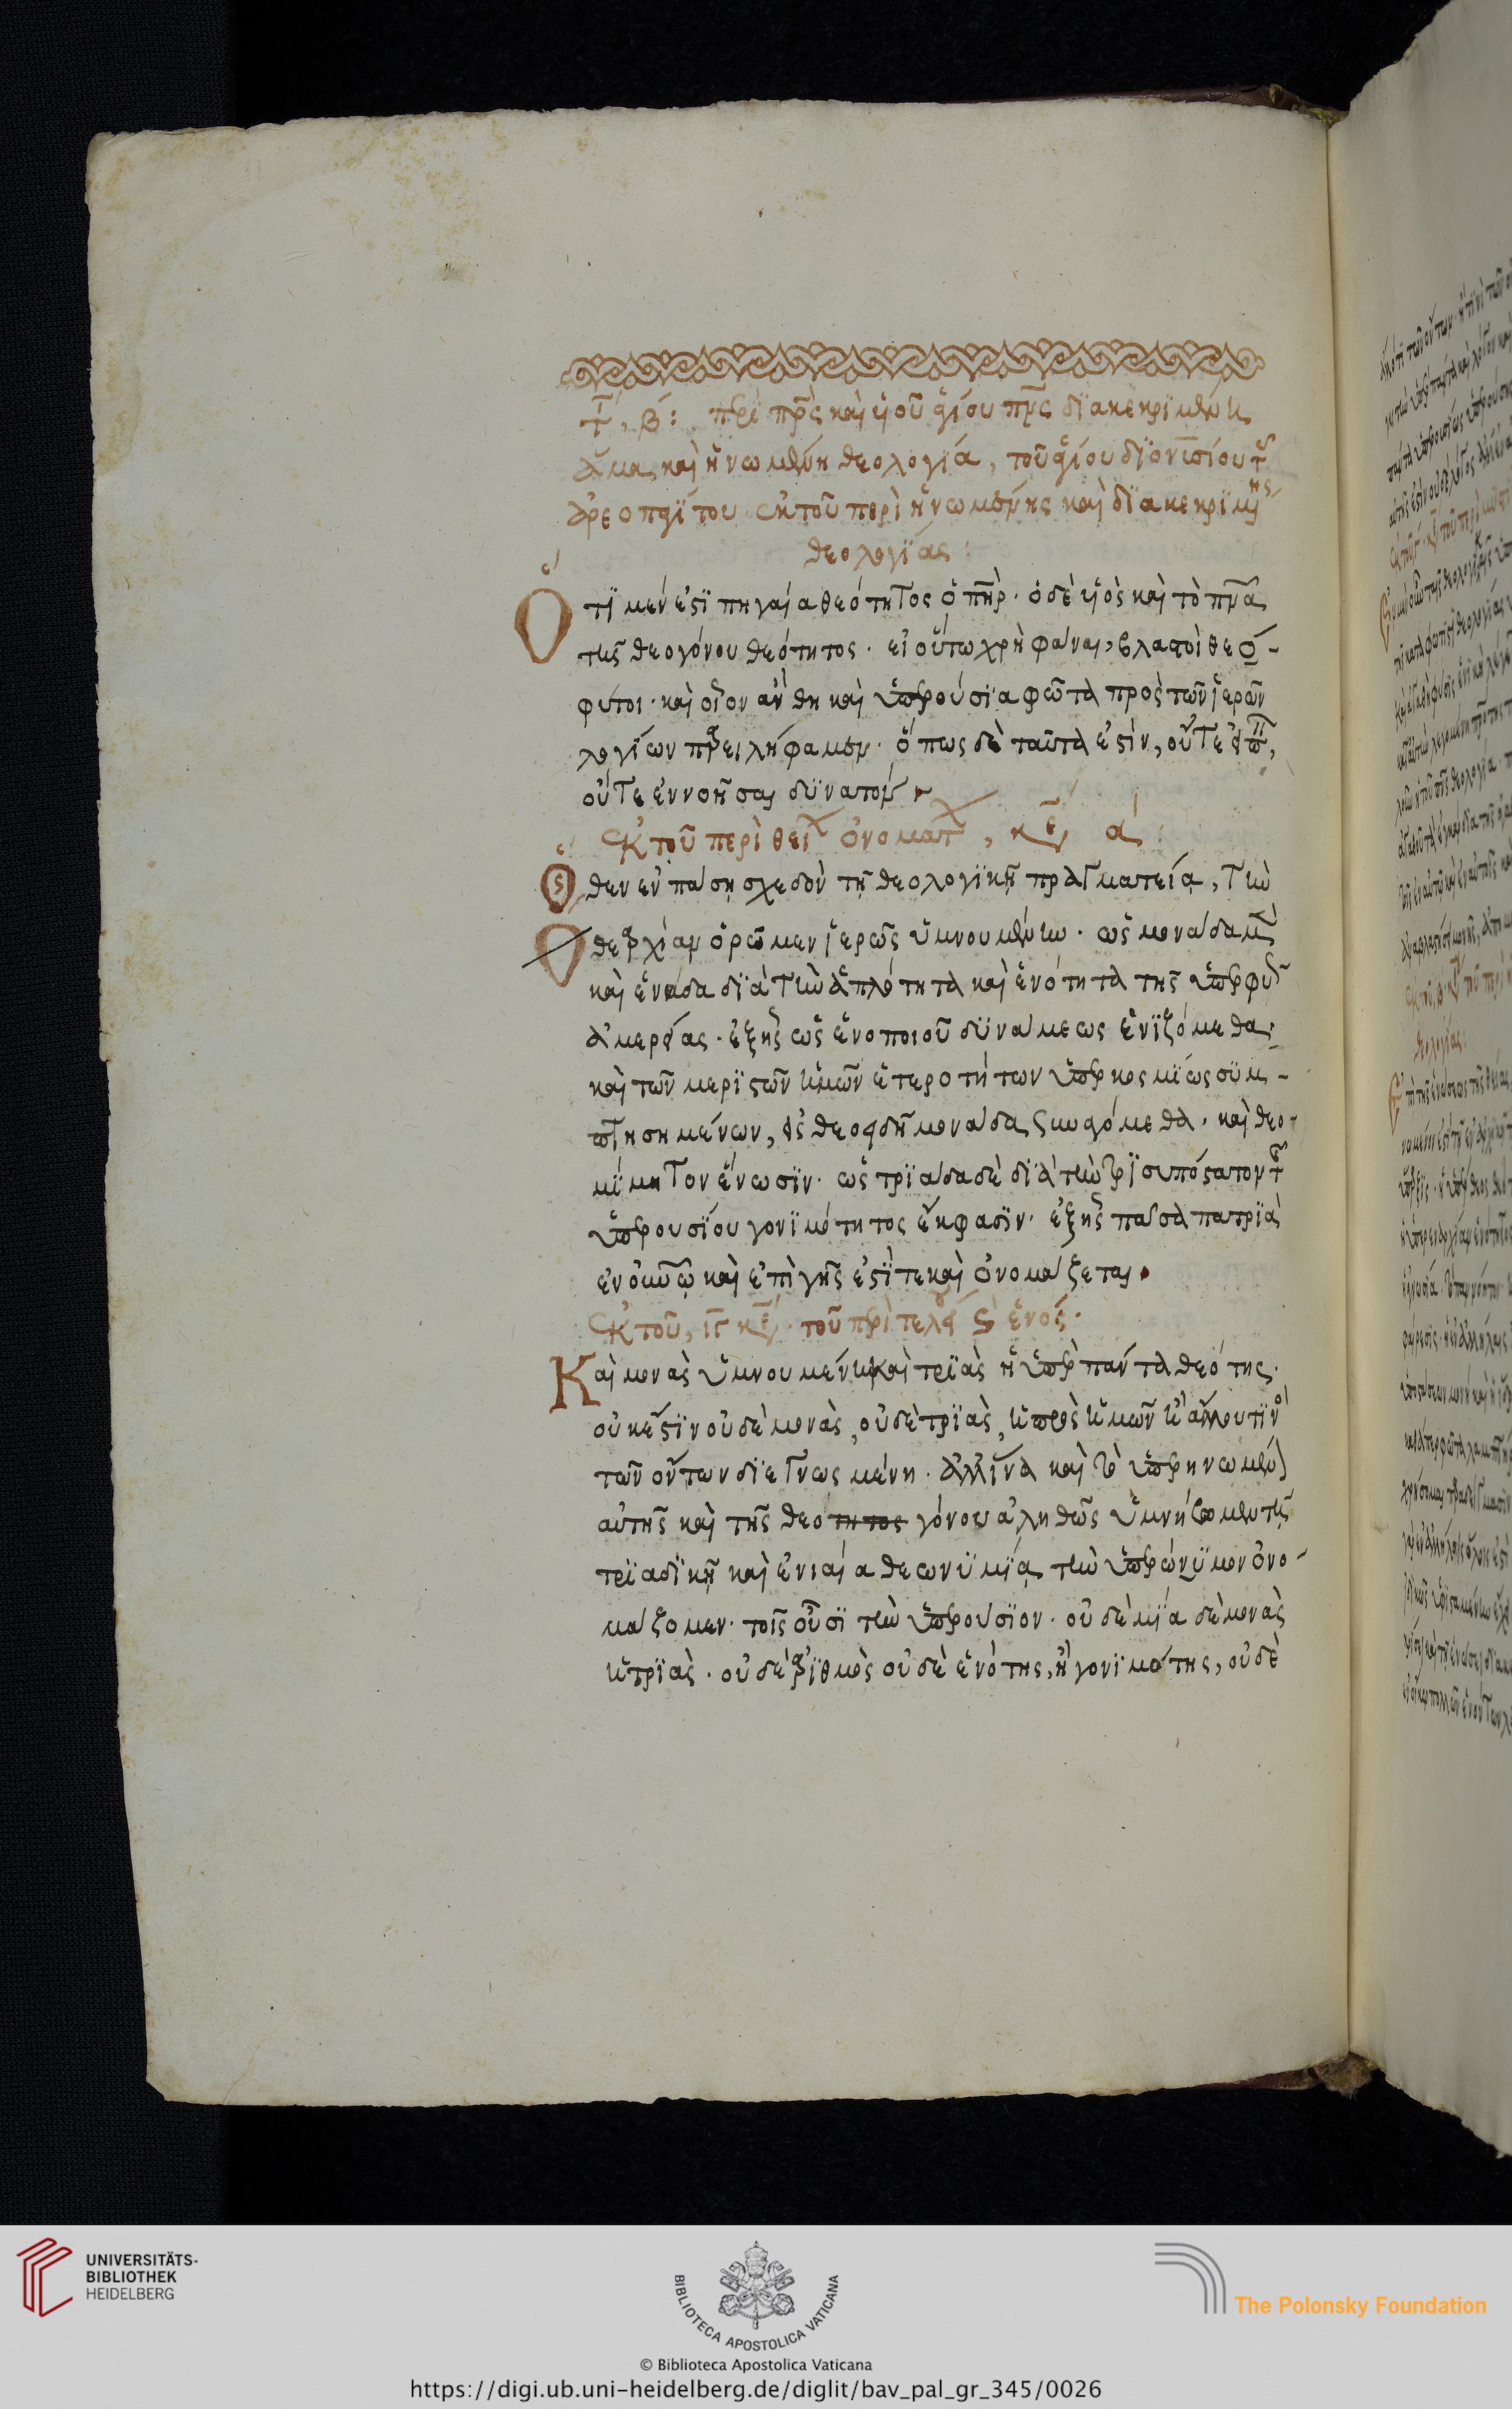 τ, β: πρι πρς και υιου αγιου πνς διακεκριμένη
ἅμα, καὶ ἡνωμένη θεολογία, τοῦ ἁγίου διονυσίου τ
ἀρεοπαγίτου ἐκ τοῦ περὶ ἡνωμένης καὶ διακεκριμης
θεολογίας:
Ὅτι μέν ἐστι πηγαία θεότητος ὁ πηρ. ὁ δὲ υἱὸς καὶ τὸ πνα
της θεογόνου θεότητος. εἰ οὕτω χρὴ φάναι, βλαστοὶ θεό-
φυτοι. καὶ οἷον ἄνθη καὶ ὑπερούσια φῶτα πρὸς τῶν ἱερῶν
λογίων παρειλήφαμεν. ὅπως δὲ ταῦτά ἐστιν, οὔτε εἰπ,
οὔτε ἐννοῆσαι δυνατόν
Ἐκ τοῦ περὶ θείων ὀνομάτ, κε α
Ὅθεν ἐν πάσῃ σχεδὸν τῇ θεολογικῇ πραγματείᾳ, τὴν
θεαρχίαν ὁρῶμεν ἱερῶς ὑμνουμένην. ὡς μονάδα μ
καὶ ἑνάδα διὰ τὴν ἁπλότητα καὶ ἑνότητα τῆς ὑπερφυ
ἀμερείας. ἐξ ἧς ὡς ἑνοποιοῦ δυνάμεως ἑνιζόμεθα.
καὶ τῶν μεριστῶν ἡμῶν ἑτεροτήτων ὑπερκοσμίως συμ-
πτησημένων, εἰς θεοειδῆ μονάδα συναγόμεθα. καὶ θεο-
μίμητον ἕνωσιν. ὡς τριάδα δὲ διὰ τὴν τρισυπόστατον τ
ὑπερουσίου γονιμότητος ἔκφασιν. ἐξ ἧς πᾶσα πατριὰ
ἐν οὐνῷ καὶ ἐπὶ γῆς ἐστί τε καὶ ὀνομάζεται.
Ἐκ τοῦ, ιγ κε. τοῦ πρὶ τελείου ϛ ἑνός.
Καὶ μονὰς ὑμνουμένη καὶ τριὰς ἡ ὑπὲρ πάντα θεότης.
οὐκ ἔστιν οὐδὲ μονὰς, οὐδὲ τριὰς, ἡ πρὸς ἡμῶν ἢ ἄλλου τινο
τῶν ὄντων διεγνωσμένη. ἀλλ' ἵνα καὶ τὸ ὑπερηνωμέν
αὐτῆς καὶ τῆς θεότητος γόνου ἀληθῶς ὑμνήσωμεν τῇ
τριαδικῇ καὶ ἑνιαία θεωνυμίᾳ τὴν ὑπερώνυμον ὀνο-
μάζομεν. τοῖς οὖσι τὴν ὑπερούσιον. οὐδὲ μία δὲ μονὰς
ἢ τριὰς. οὐδὲ ἀριθμὸς οὐδὲ ἑνότης, ἢ γονιμότης, οὐδὲ
UNIVERSITÄTS-
BIBLIOTHEK
HEIDELBERG
BIBLIOTECA APOSTOLICA VATICANA
The Polonsky Foundation
© Biblioteca Apostolica Vaticana
https://digi.ub.uni-heidelberg.de/diglit/bav_pal_gr_345/0026